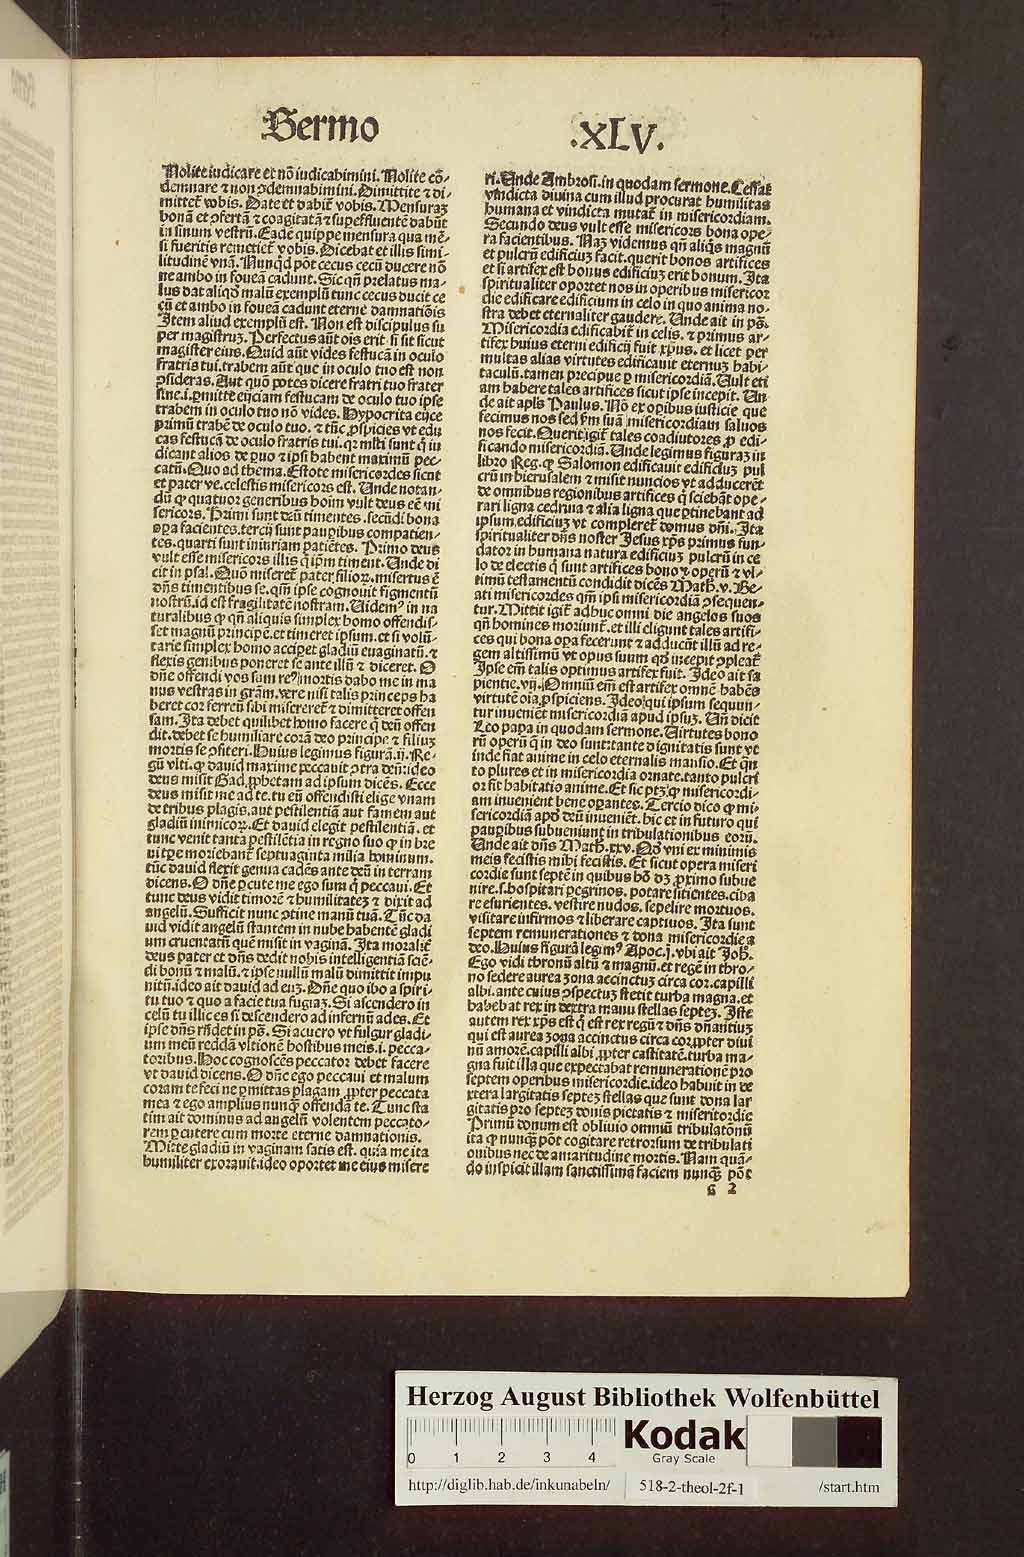 Sermo
.XLV.
Nolite iudicare et nō iudicabimini. Nolite cō-
demnare ⁊ non ꝯdemnabimini. Dimittite ⁊ di-
mittet̄ vobis. Date et dabit̄ vobis. Mensuraꝫ
bonā et ꝯfertā ⁊ coagitatā ⁊ suꝑeffluentē dabūt
in sinum vestrū. Eadē quippe mensura qua mē-
si fueritis remetiet̄ vobis. Dicebat et illis simi-
litudinē vnā. Nunqͥd pōt cecus cecū ducere nō
ne ambo in foueā cadunt. Sic qn̄ prelatus ma-
lus dat aliqd̓ malū exemplū tunc cecus ducit ce
cū et ambo in foueā cadunt eterne damnatiōis
Item aliud exemplū est. Non est discipulus su
per magistruꝫ. Perfectus aūt ois erit si sit sicut
magister eius. Quid aūt vides festucā in oculo
fratris tui. trabem aūt que in oculo tuo est non
ꝯsideras. Aut quō potes dicere fratri tuo frater
sine .i. ꝑmitte eijciam festucam de oculo tuo ipse
trabem in oculo tuo nō vides. Hypocrita eijce
primū trabē de oculo tuo. ⁊ tūc ꝓspicies vt edu
cas festucā de oculo fratris tui. qꝛ mĺti sunt qͥ iu
dicant alios de ꝑuo ⁊ ipsi habent maximū pec-
catū. Quo ad thema. Estote misericordes sicut
et pater ve. celestis misericors est. Unde notan-
dū ꝙ quatuor generibus hoīm vult deus eē mi
sericors. Primi sunt deū timentes. secūdi bona
oꝑa facientes. tercij sunt pauꝑibus compatien-
tes. quarti sunt iniuriam patiētes. Primo deus
vult esse misericors illis qͥ ipm̄ timent. Unde di
cit in psal. Quō miseret̄ pater filioꝝ. misertus ē
dn̄s timentibus se. qm̄ ipse cognouit figmentū
nostrū. id est fragilitatē nostram. Uidemꝰ in na
turalibus ꝙ qn̄ aliquis simplex homo offendis-
set magnū principē. et timeret ipsum. et si volū-
tarie simplex homo acciꝑet gladiū euaginatū. ⁊
flexis genibus poneret se ante illū ⁊ diceret. O
dn̄e offendi vos sum reꝰ mortis dabo me in ma
nus vestras in grām. vere nisi talis princeps ha
beret cor ferreū sibi misereret̄ ⁊ dimitteret offen
sam. Ita debet quilibet homo facere qͥ deū offen
dit. debet se humiliare corā deo principe ⁊ filiuꝫ
mortis se ꝯfiteri. Huius legimus figurā. ij. Re-
gū vlti. ꝙ dauid maxime peccauit ꝯtra deū: ideo
deus misit Gad ꝓphetam ad ipsum dicēs. Ecce
deus misit me ad te. tu eū offendisti elige vnam
de tribus plagis. aut pestilentiā aut famem aut
gladiū inimicoꝝ. Et dauid elegit pestilentiā. et
tunc venit tanta pestilētia in regno suo ꝙ in bre
ui tꝑe moriebant̄ septuaginta milia hominum.
tūc dauid flexit genua cadēs ante deū in terram
dicens. O dn̄e ꝑcute me ego sum qͥ peccaui. Et
tunc deus vidit timorē ⁊ humilitateꝫ ⁊ dixit ad
angelū. Sufficit nunc ꝯtine manū tuā. Tūc da
uid vidit angelū stantem in nube habentē gladi
um cruentatū quē misit in vaginā. Ita moralit̄
deus pater et dn̄s dedit nobis intelligentiā sciē-
di bonū ⁊ malū. ⁊ ipse nullū malū dimittit impu
nitū. ideo ait dauid ad euꝫ. Dn̄e quo ibo a spiri-
tu tuo ⁊ quo a facie tua fugiaꝫ. Si ascendero in
celū tu illic es si descendero ad infernū ades. Et
ipse dn̄s rn̄det in ps̄. Si acuero vt fulgur gladi-
um meū reddā vltionē hostibus meis. i. pecca-
toribus. Hoc cognoscēs peccator debet facere
vt dauid dicens. O dn̄e ego peccaui et malum
coram te feci ne ꝑmittas plagam ꝓpter peccata
mea ⁊ ego amplius nunqͣ offendā te. Tunc sta
tim ait dominus ad angelū volentem peccato-
rem ꝑcutere cum morte eterne damnationis.
Mitte gladiū in vaginam satis est. quia me ita
humiliter exorauit. ideo oportet me eius misere
ri. Unde Ambrosi. in quodam sermone. Cessat
vindicta diuina cum illud procurat humilitas
humana et vindicta mutat̄ in misericordiam.
Secundo deus vult esse misericors bona ope-
ra facientibus. Naꝫ videmus qn̄ aliqͥs magnū
et pulcrū edificiuꝫ facit. querit bonos artifices
et si artifex est bonus edificiuꝫ erit bonum. Ita
spiritualiter oportet nos in operibus misericor
die edificare edificium in celo in quo anima no-
stra debet eternaliter gaudere. Unde ait in ps̄.
Misericordia edificabit̄ in celis. ⁊ primus ar-
tifex huius eterni edificij fuit xp̄us. et licet per
multas alias virtutes edificauit eternuꝫ habi-
taculū. tamen precipue ꝑ misericordiā. Uult etī
am habere tales artifices sicut ipse incepit. Un-
de ait apl̄s Paulus. Nō ex opibus iusticie que
fecimus nos sed ẜm suā misericordiam saluos
nos fecit. Querit igit̄ tales coadiutores ꝓ edi-
ficando misericordiā. Unde legimus figuraꝫ in
libro Reg. ꝙ Salomon edificauit edificiuꝫ pul
crū in hierusalem ⁊ misit nuncios vt adducerēt
de omnibus regionibus artifices qͥ sciebāt ope-
rari ligna cedrina ⁊ alia ligna que ꝑtinebant ad
ipsum edificiuꝫ vt compleret̄ domus dn̄i. Ita
spiritualiter dn̄s noster Jesus xp̄s primus fun-
dator in humana natura edificiuꝫ pulcrū in ce
lo de electis qͥ sunt artifices bonoꝝ operū ⁊ vl-
timū testamentū condidit dicēs Math. v. Be-
ati misericordes qm̄ ipsi misericordiā ꝯsequen-
tur. Mittit igit̄ adhuc omni die angelos suos
qn̄ homines moriunt̄. et illi eligunt tales artifi-
ces qui bona oꝑa fecerunt ⁊ adducūt illū ad re-
gem altissimū vt opus suum qd̓ incepit ꝯpleat̄
Ipse em̄ talis optimus artifex fuit. Ideo ait sa
pientie. vij. Omniū em̄ est artifex omnē habēs
virtutē oīa ꝓspiciens. Ideo qui ipsum sequun-
tur inueniēt misericordiā apud ipsuꝫ. Un̄ dicit
Leo papa in quodam sermone. Uirtutes bono
rū operū qͥ in deo sunt: tante dignitatis sunt vt
inde fiat anime in celo eternalis mansio. Et qͣn
to plures et in misericordia ornate. tanto pulcri
or fit habitatio anime. Et sic ptꝫ ꝙ misericordi-
am inuenient bene oꝑantes. Tercio dico ꝙ mi-
sericordiā apd̓ deū inueniēt. hic et in futuro qui
pauꝑibus subueniunt in tribulationibus eorū.
Unde ait dn̄s Math. xxv. Qd̓ vni ex minimis
meis fecistis mihi fecistis. Et sicut opera miseri
cordie sunt septē in quibus hō dꝫ ꝓximo subue
nire. s. hospitari ꝑegrinos. potare sitientes. ciba
re esurientes. vestire nudos. sepelire mortuos.
visitare infirmos ⁊ liberare captiuos. Ita sunt
septem remunerationes ⁊ dona misericordie a
deo. Huius figurā legimꝰ Apoc. j. vbi ait Joh.
Ego vidi thronū altū ⁊ magnū. et regē in thro-
no sedere aurea zona accinctuꝫ circa cor. capilli
albi. ante cuius ꝯspectuꝫ stetit turba magna. et
habebat rex in dextra manu stellas septeꝫ. Iste
autem rex xp̄s est qͥ est rex regū ⁊ dn̄s dn̄antiuꝫ
qui est aurea zona accinctus circa cor ꝓpter diui
nū amorē. capilli albi ꝓpter castitatē. turba ma-
gna fuit illa que expectabat remunerationē pro
septem operibus misericordie. ideo habuit in de
xtera largitatis septeꝫ stellas que sunt dona lar
gitatis pro septeꝫ donis pietatis ⁊ misericordie
Primū donum est obliuio omniū tribulationū
ita ꝙ nunqͣꝫ pōt cogitare retrorsum de tribulati
onibus nec de amaritudine mortis. Nam quā-
do inspicit illam sanctissimā faciem nunqͣꝫ pōt
G 2
Herzog August Bibliothek Wolfenbüttel
0 1 2 3 4
Kodak
Gray Scale
http://diglib.hab.de/inkunabeln/ 518-2-theol-2f-1 /start.htm